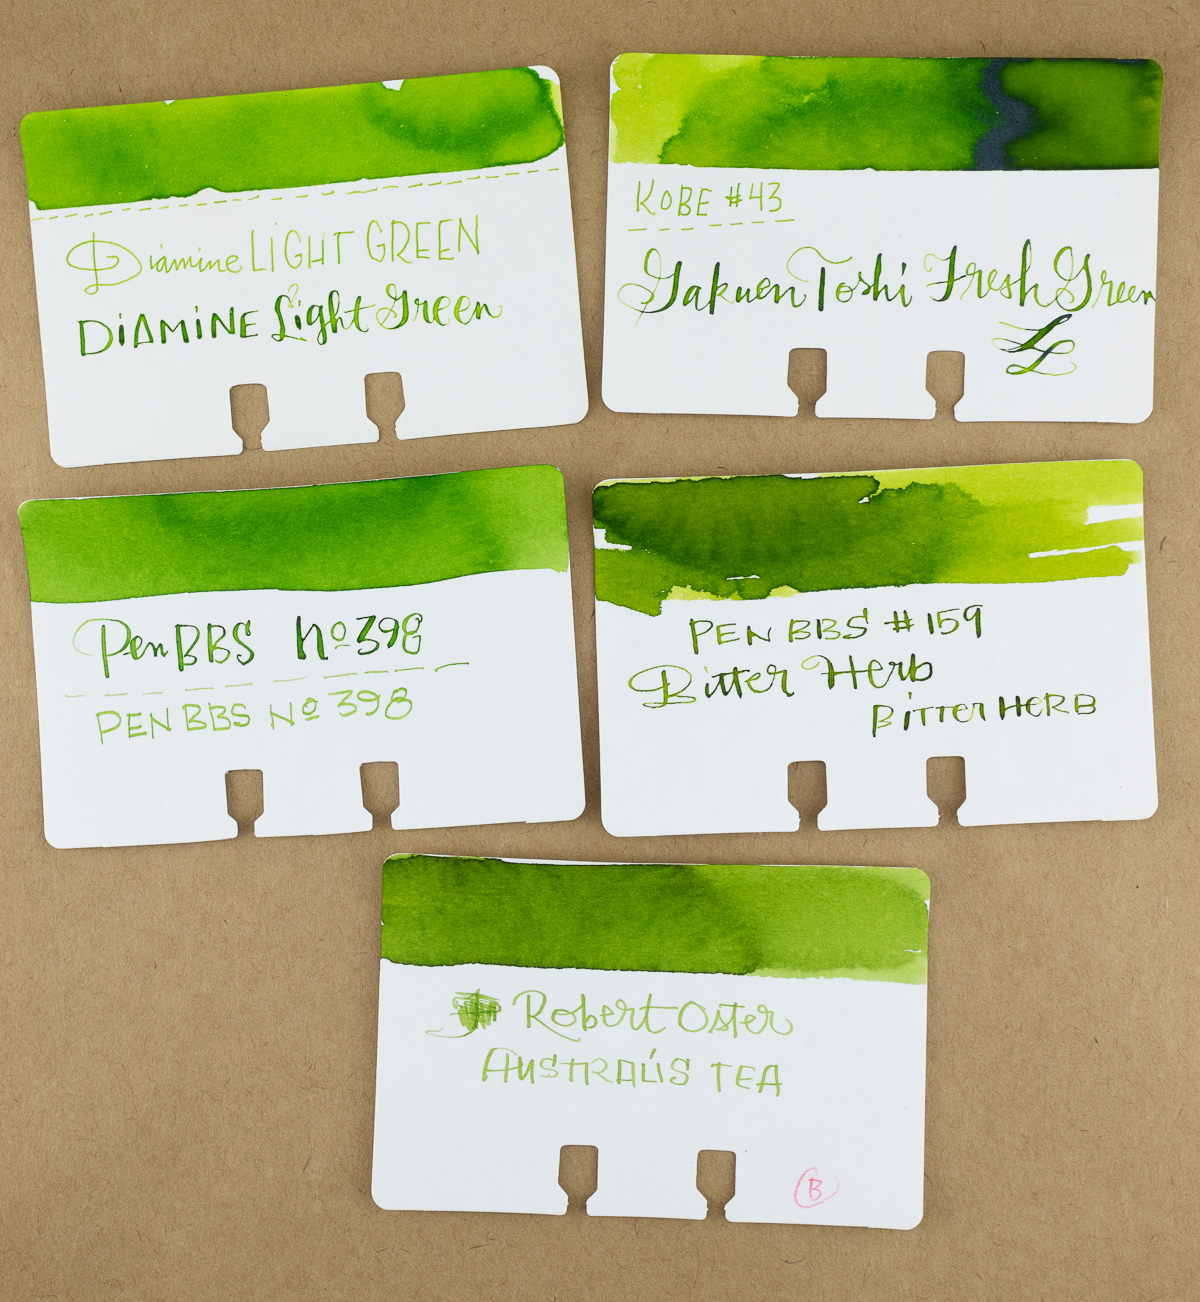 Diamine LIGHT GREEN
DIAMINE Light Green
KOBE #43
Gakuen Toshi Fresh Green
PenBBS No 398
PEN BBS No 398
PEN BBS #159
Bitter Herb
BITTER HERB
Robert Oster
AUSTRALIS TEA
B